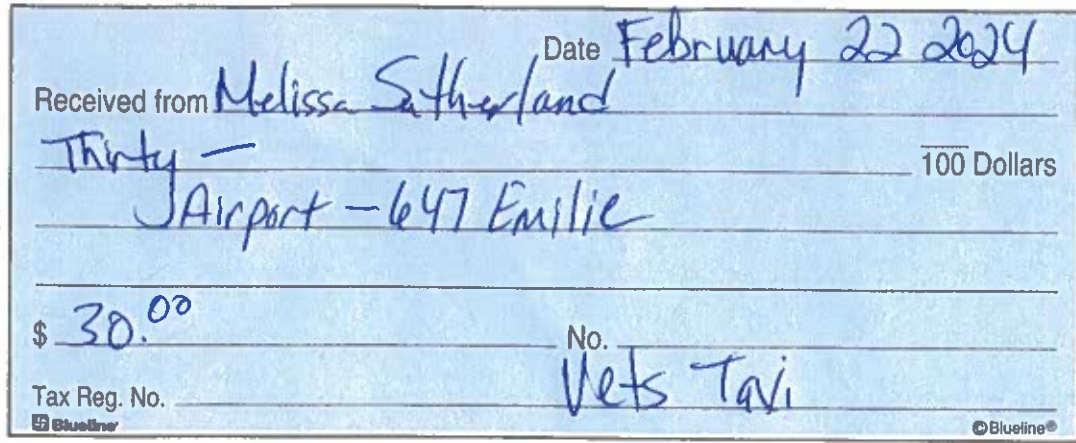 Date February 22 2024
Received from Melissa Sutherland
Thirty — 100 Dollars
Airport - 647 Emilie
$ 30.00 No.
Vets Taxi
Tax Reg. No.
Blueline ©Blueline®